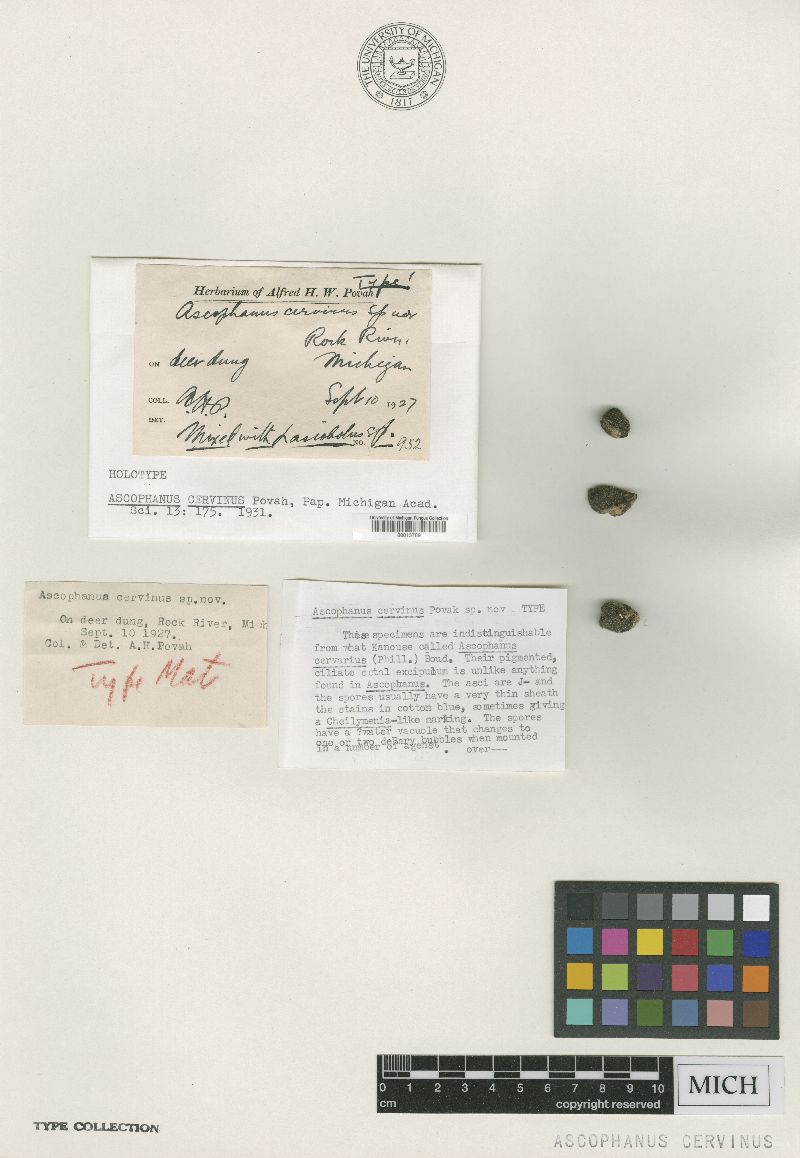 THE UNIVERSITY OF MICHIGAN
1817
Type!
Herbarium of Alfred H. W. Povah
Ascophanus cervinus sp nov
Rock River,
ON deer dung Michigan
COLL. A.H.P. Sept 10 1927
DET.
Mixed with Lasiobolus sp. NO. 932
HOLOTYPE
ASCOPHANUS CERVINUS Povah, Pap. Michigan Acad.
Sci. 13: 175. 1931.
University of Michigan Fungus Collection
Ascophanus cervinus sp.nov.
On deer dung, Rock River, Mich
Sept. 10 1927.
Col. & Det. A.H.Povah
Type Mat
Ascophanus cervinus Povak sp. nov. TYPE
These specimens are indistinguishable
from what Kanouse called Ascophanus
cervarius (Phill.) Boud. Their pigmented,
ciliate ectal excipulum is unlike anything
found in Ascophanus. The asci are J- and
the spores usually have a very thin sheath
the stains in cotton blue, sometimes giving
a Cheilymenia-like marking. The spores
have a ?water vacuole that changes to
one or two deBary bubbles when mounted
in a number of agenst. over---
0 1 2 3 4 5 6 7 8 9 10
cm copyright reserved
MICH
TYPE COLLECTION
ASCOPHANUS CERVINUS